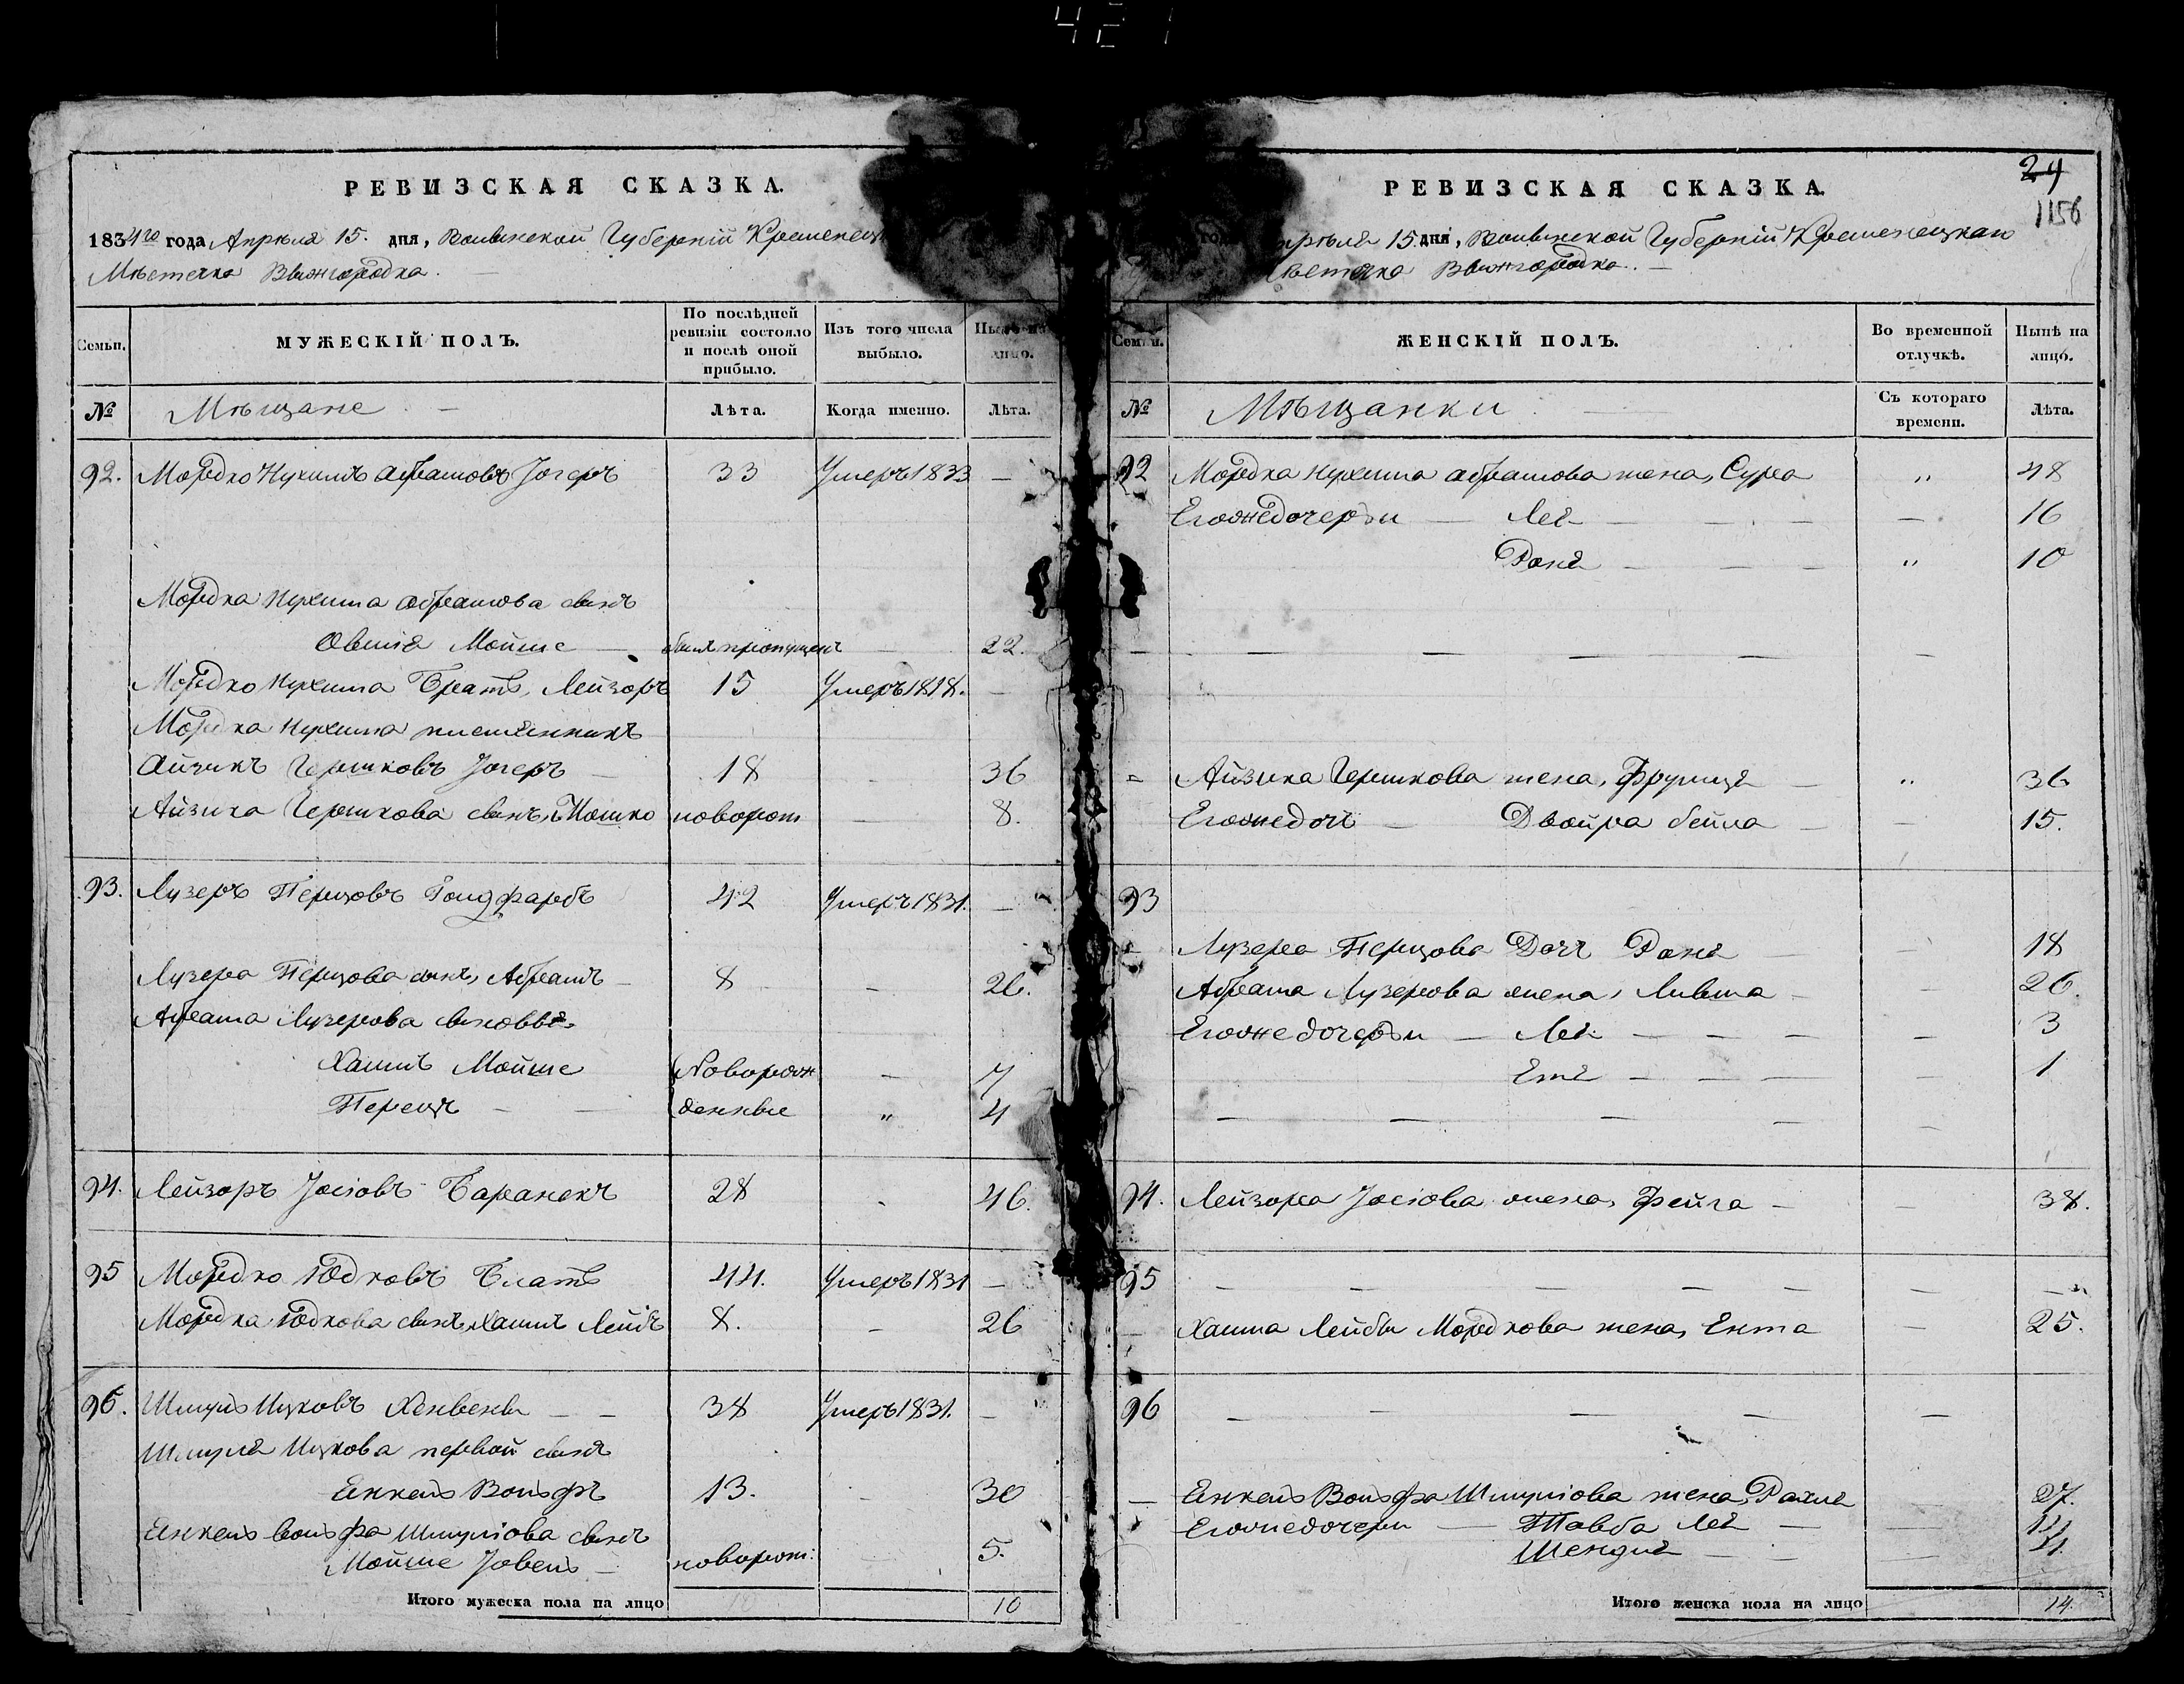 421
РЕВИЗСКАЯ СКАЗКА.
1834го года Апреля 15. дня, Волынской Губерній Кременец
Мѣстечка Вышгородка.
Семьи. МУЖЕСКІЙ ПОЛЪ. По послѣдней ревизіи состояло и послѣ оной прибыло. Изъ того числа выбыло. Нынѣ на лицо.
№ Мѣщане Лѣта. Когда именно. Лѣта.
92. Мордко Нухимъ Абрамовъ Јогеръ 33 Умеръ 1833 —
Мордка Нухима Абрамова сынъ
Овшія Мойше — былъ пропущенъ — 22.
Мордко Нухима Братъ, Лейзоръ 15 Умеръ 1818. —
Мордка Нухима племянникъ
Айзикъ Гершковъ Јогеръ — 18 — 36
Айзика Гершкова сынъ, Йошко новорож — 8.
93. Лузеръ Перцовъ Голдфарбъ 42 Умеръ 1831. —
Лузера Перцова сынъ, Абрамъ — 8 — 26.
Абрама Лузерова сыновья
Хаимъ Мойше Новорож — 7
Перецъ — — денные „ 4
94. Лейзоръ Јосіовъ Баранекъ 28 - 46.
95 Мордко Юдковъ Блатъ 44. Умеръ 1831 —
Мордка Юдкова сынъ, Хаимъ Лейбъ 8. — 26
96. Шмуль Ицковъ Хенвенъ — — 38 Умеръ 1831. —
Шмуля Ицкова первой сынъ
Енкель Вольфъ 13. — 30
Енкель Вольфа Шмуліова сынъ
Мойше Јовель — новорож: — 5.
Итого мужеска пола на лицо 10 10
24
1156
РЕВИЗСКАЯ СКАЗКА.
прѣля 15 дня, Волынской Губерній Кременецкаго
ѣстечка Вышгородка. —
Семьи. ЖЕНСКІЙ ПОЛЪ. Во временной отлучкѣ. Нынѣ на лицо.
№ Мѣщанки Съ котораго времени. Лѣта.
92 Мордка Нухима Абрамова жена, Сура „ 48
Егоже дочери — Лея — — — — 16
Рання — — — „ 10
— — — — — —
- Айзика Гершкова жена, Фрунця — „ 36
Егоже дочь — Двойра бейла — — 15.
93
— Лузера Перцова Дочь Рання — — 18
Абрама Лузерова жена, Ливша — — 26.
Егоже дочери — Лея — — — — 3
Етя — — — — 1
— — — — —
94. Лейзора Јосіова жена, Фейга — — 38.
95 — — — — — — —
— Хаима Лейбы Мордкова жена, Ента — 25.
96 — — — — —
— Енкель Вольфа Шмуліова жена, Рахля — 27.
Егоже дочери — Товба Лея — —
Шендля — — — 4.
Итого женска пола на лицо 14.